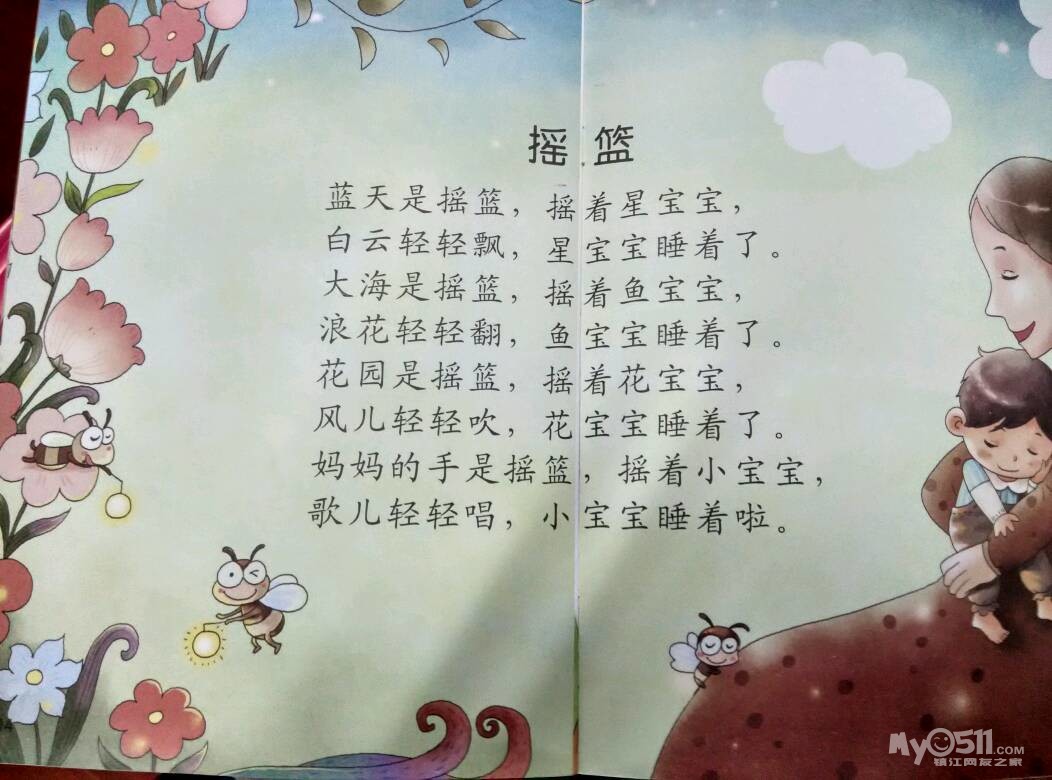 摇篮
蓝天是摇篮，摇着星宝宝，
白云轻轻飘，星宝宝睡着了。
大海是摇篮，摇着鱼宝宝，
浪花轻轻翻，鱼宝宝睡着了。
花园是摇篮，摇着花宝宝，
风儿轻轻吹，花宝宝睡着了。
妈妈的手是摇篮，摇着小宝宝，
歌儿轻轻唱，小宝宝睡着啦。
My0511.COM
镇江网友之家